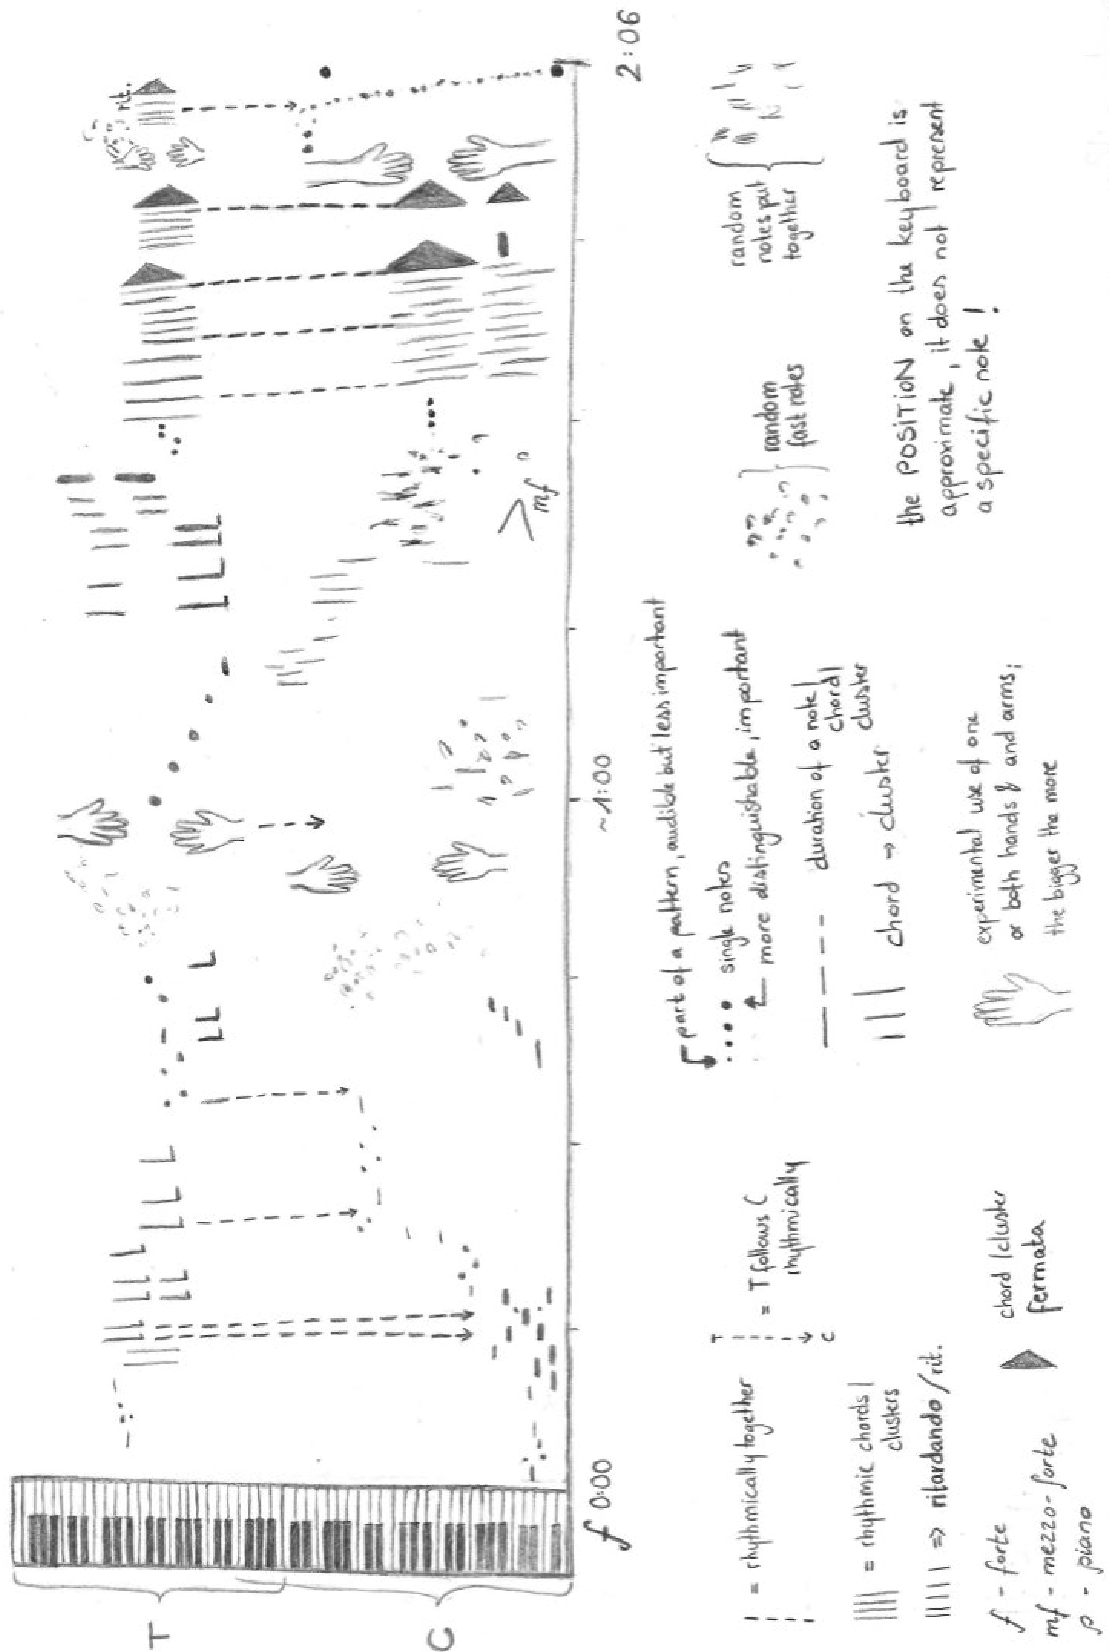 T
C
rit.
mf
f 0:00
~1:00
2:06
= rhythmically together
T
C
= T follows C
rhythmically
= rhythmic chords/
clusters
=> ritardando/rit.
f - forte
mf - mezzo-forte
p - piano
chord/cluster
fermata
part of a pattern, audible but less important
single notes
more distinguishable, important
duration of a note/
chord/
cluster
chord → cluster
experimental use of one
or both hands & and arms;
the bigger the more
random
fast notes
random
notes put
together
the POSITION on the keyboard is
approximate, it does not represent
a specific note!